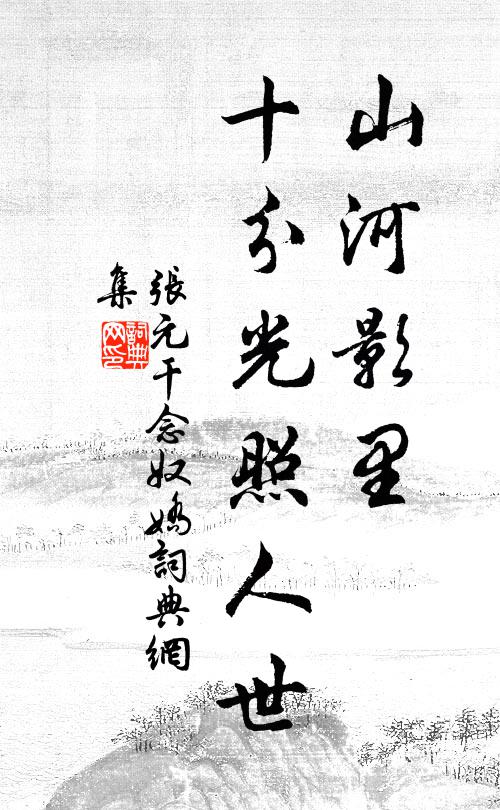 山河影里
十分光照人世
張元干念奴嬌詞典網
集
詞典
网印